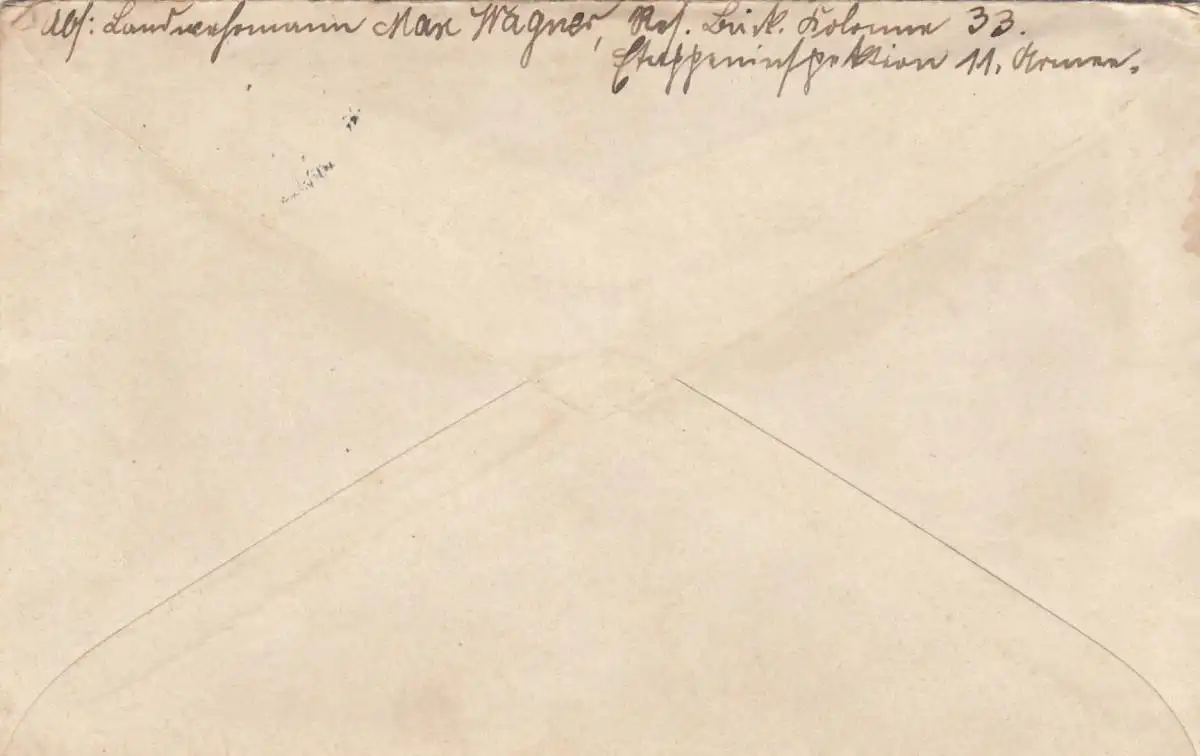 Abs: Landwehrmann Max Wagner, Res. Bäck. Kolonne 33.
Etappeninspektion 11. Armee.